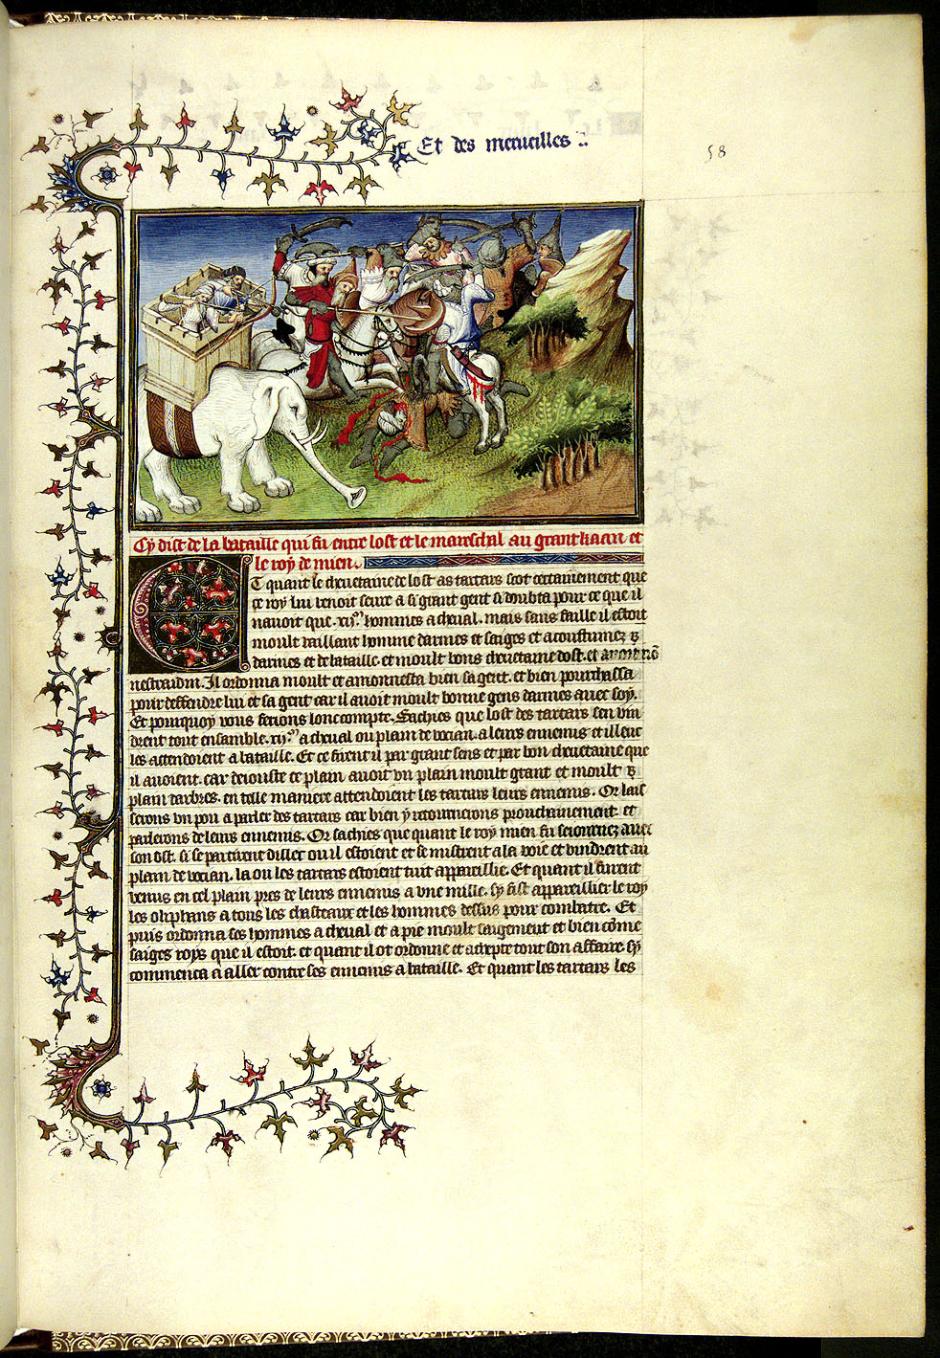 Et des merueilles
58
Cy dist de la bataille qui fu entre lost et le mareschal au grant kaan et
le roy de mien.
Et quant le cheuetaine de lost as tartars scot certainement que
ce roy lui venoit seure a si grant gent si doubta pour ce que il
nauoit que .xij.m hommes a cheual. mais sans faille il estoit
moult vaillant homme darmes et saiges et acoustumez
darmes et de bataille. et moult bons cheuetaine dost. et auoit nō
nestraidin. Il ordonna moult et amonnesta bien sa gent. et bien pourchassa
pour deffendre lui et sa gent car il auoit moult bonne gens darmes auec soy.
Et pourquoy vous ferons lonc compte. Saches que lost des tartars sen vin
drent tout ensamble .xij.m a cheual ou plain de vocian. a leurs ennemis et illeuc
les attendoient a bataille. Et ce firent il par grant sens et par bon cheuetaine que
il auoient. car deiouste ce plain auoit vn plain moult grant et moult
plain darbres. en telle maniere attendoient les tartars leurs ennemis. Or lais
serons vn pou a parler des tartars car bien y retournerons prouchainement et
parlerons de leurs ennemis. Or sachies que quant le roy mien fu seiornez auec
son ost. si se partirent dillec ou il estoient et se mistrent a la voie et vindrent au
plain de vocian. la ou les tartars estoient tuit appareillie. Et quant il furent
venus en cel plain pres de leurs ennemis a vne mille. sy fist appareillier le roy
les oliphans a tous les chasteaux et les hommes dessus pour combatre. Et
puis ordonna ses hommes a cheual et a pie moult saigement et bien cōme
saiges roys que il estoit. et quant il ot ordonne et tout son affaire. sy
commenca a aller contre ses ennemis a bataille. Et quant les tartars les